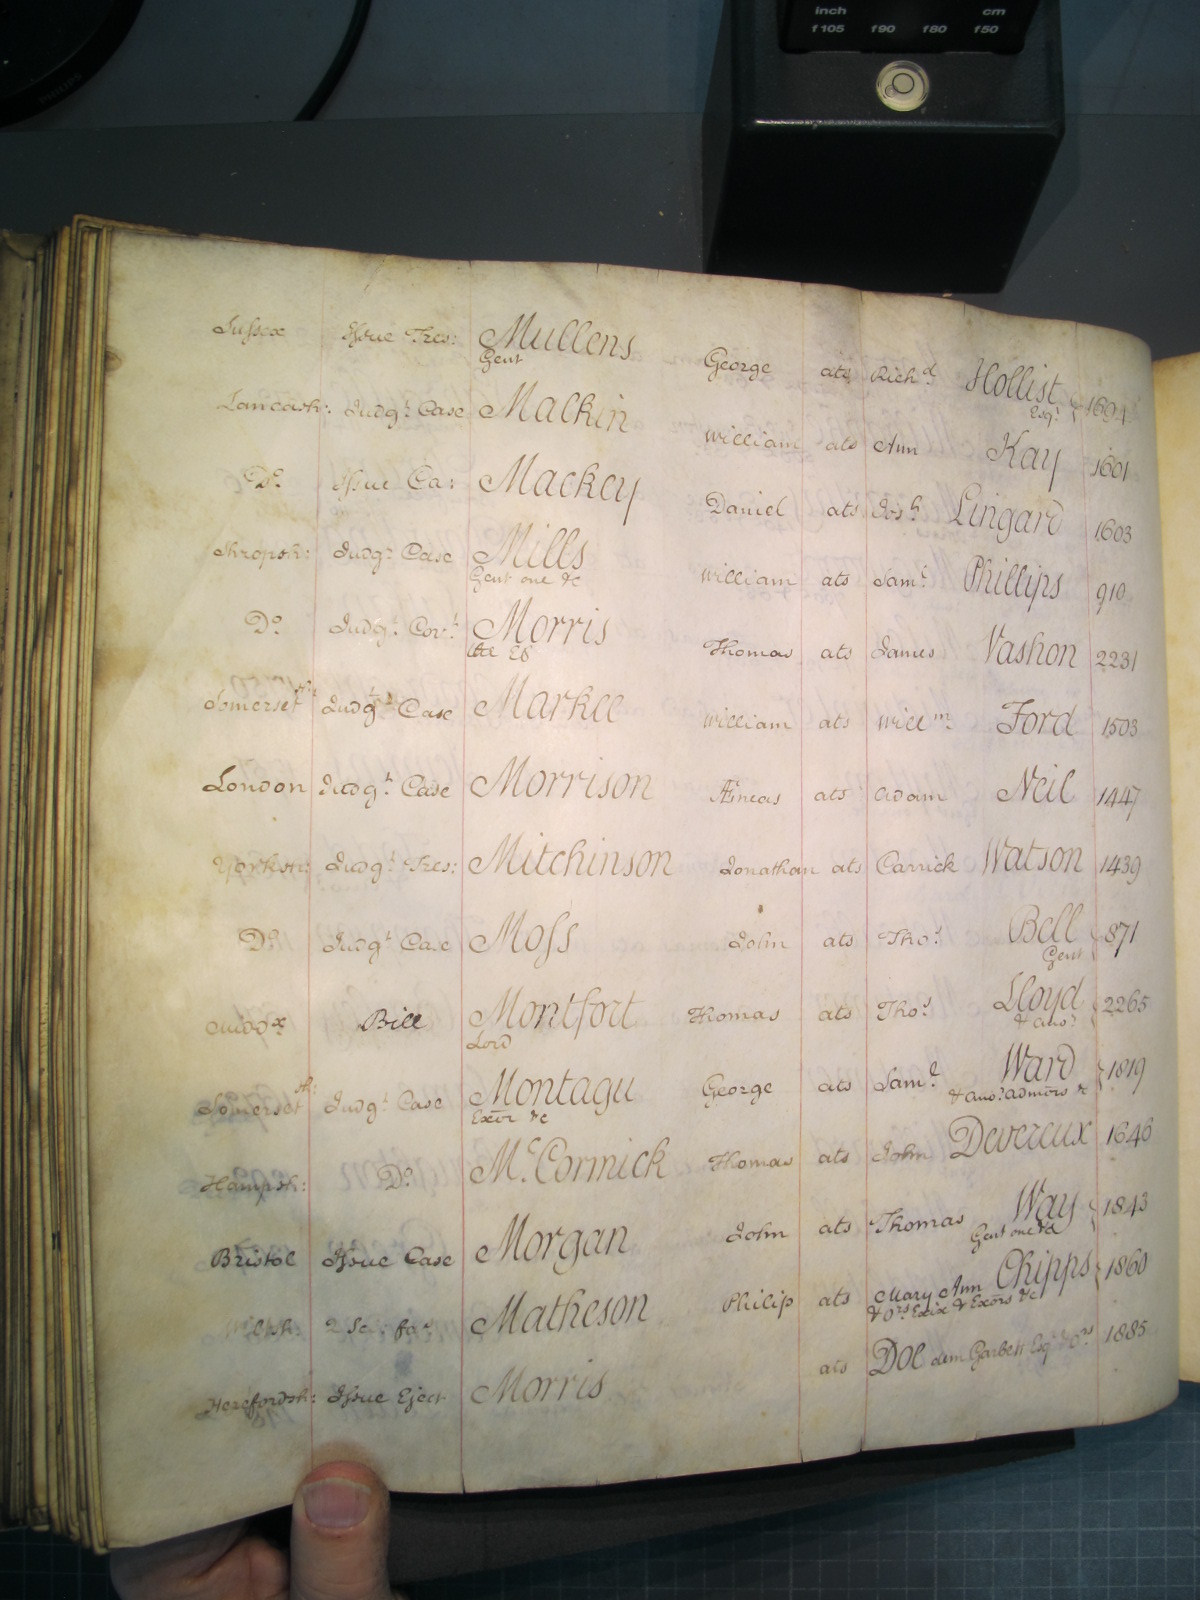 PHILIPS
inch cm
f105 f90 f80 f50
Sussex Issue Tres: Mullens Gent George ats Richd. Hollist Esqr. 1604
Lancash: Judgt. Case Malkin William ats Ann Kay 1601
Do. Issue Ca: Mackey Daniel ats Josh. Lingard 1603
Shropsh: Judgt. Case Mills Gent one &c William ats Saml. Phillips 910
Do. Judgt. Covt. Morris Thomas ats James Vashon 2231
Somersetsh: Judgt. Case Markee William ats Willm. Ford 1503
London Judgt. Case Morrison Æneas ats Adam Neil 1447
Yorksh: Judgt. Tres: Mitchinson Jonathan ats Carrick Watson 1439
Do. Judgt. Case Moss John ats Thos. Bell Gent 871
Middx Bill Montfort Lord Thomas ats Thos. Lloyd & anor. 2265
Somersetsh: Judgt. Case Montagu Exor &c George ats Saml. Ward & anor. admors &c 1819
Hampsh: Do. Mc.Cormick Thomas ats John Devereux 1646
Bristol Issue Case Morgan John ats Thomas Way Gent one &c 1843
2 Sci: fas. Matheson Philip ats Mary Ann Chipps & ors. Exix & Exors &c 1860
Herefordsh: Issue Eject Morris ats Doe dem Garbett Esqr. & ors 1885